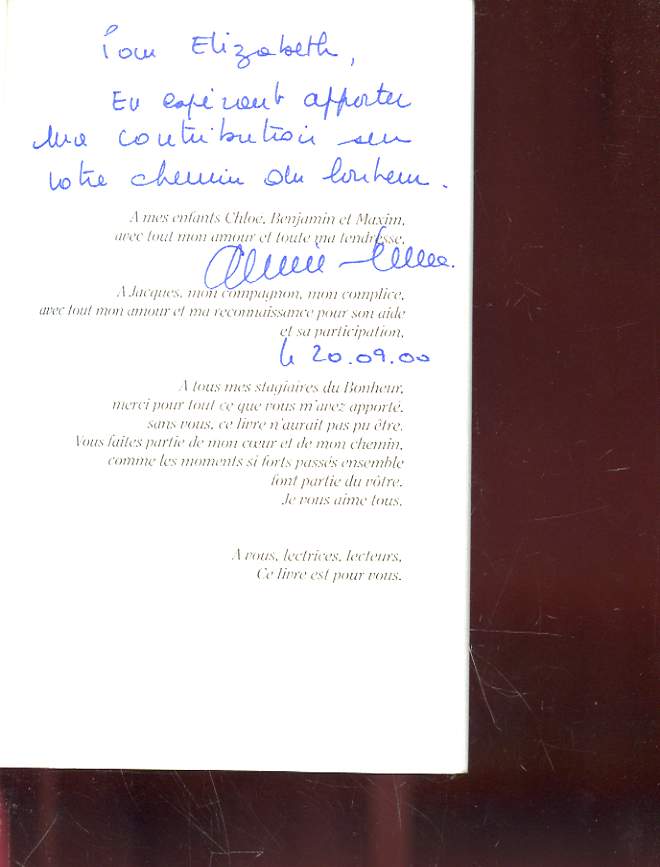 Pour Elizabeth,
En espérant apporter
ma contribution sur
votre chemin du bonheur.
A mes enfants Chloe, Benjamin et Maxim,
avec tout mon amour et toute ma tendresse.
A Jacques, mon compagnon, mon complice,
avec tout mon amour et ma reconnaissance pour son aide
et sa participation.
le 20.09.00
A tous mes stagiaires du Bonheur,
merci pour tout ce que vous m'avez apporté,
sans vous, ce livre n'aurait pas pu être.
Vous faites partie de mon cœur et de mon chemin,
comme les moments si forts passés ensemble
font partie du vôtre.
Je vous aime tous.
A vous, lectrices, lecteurs,
Ce livre est pour vous.